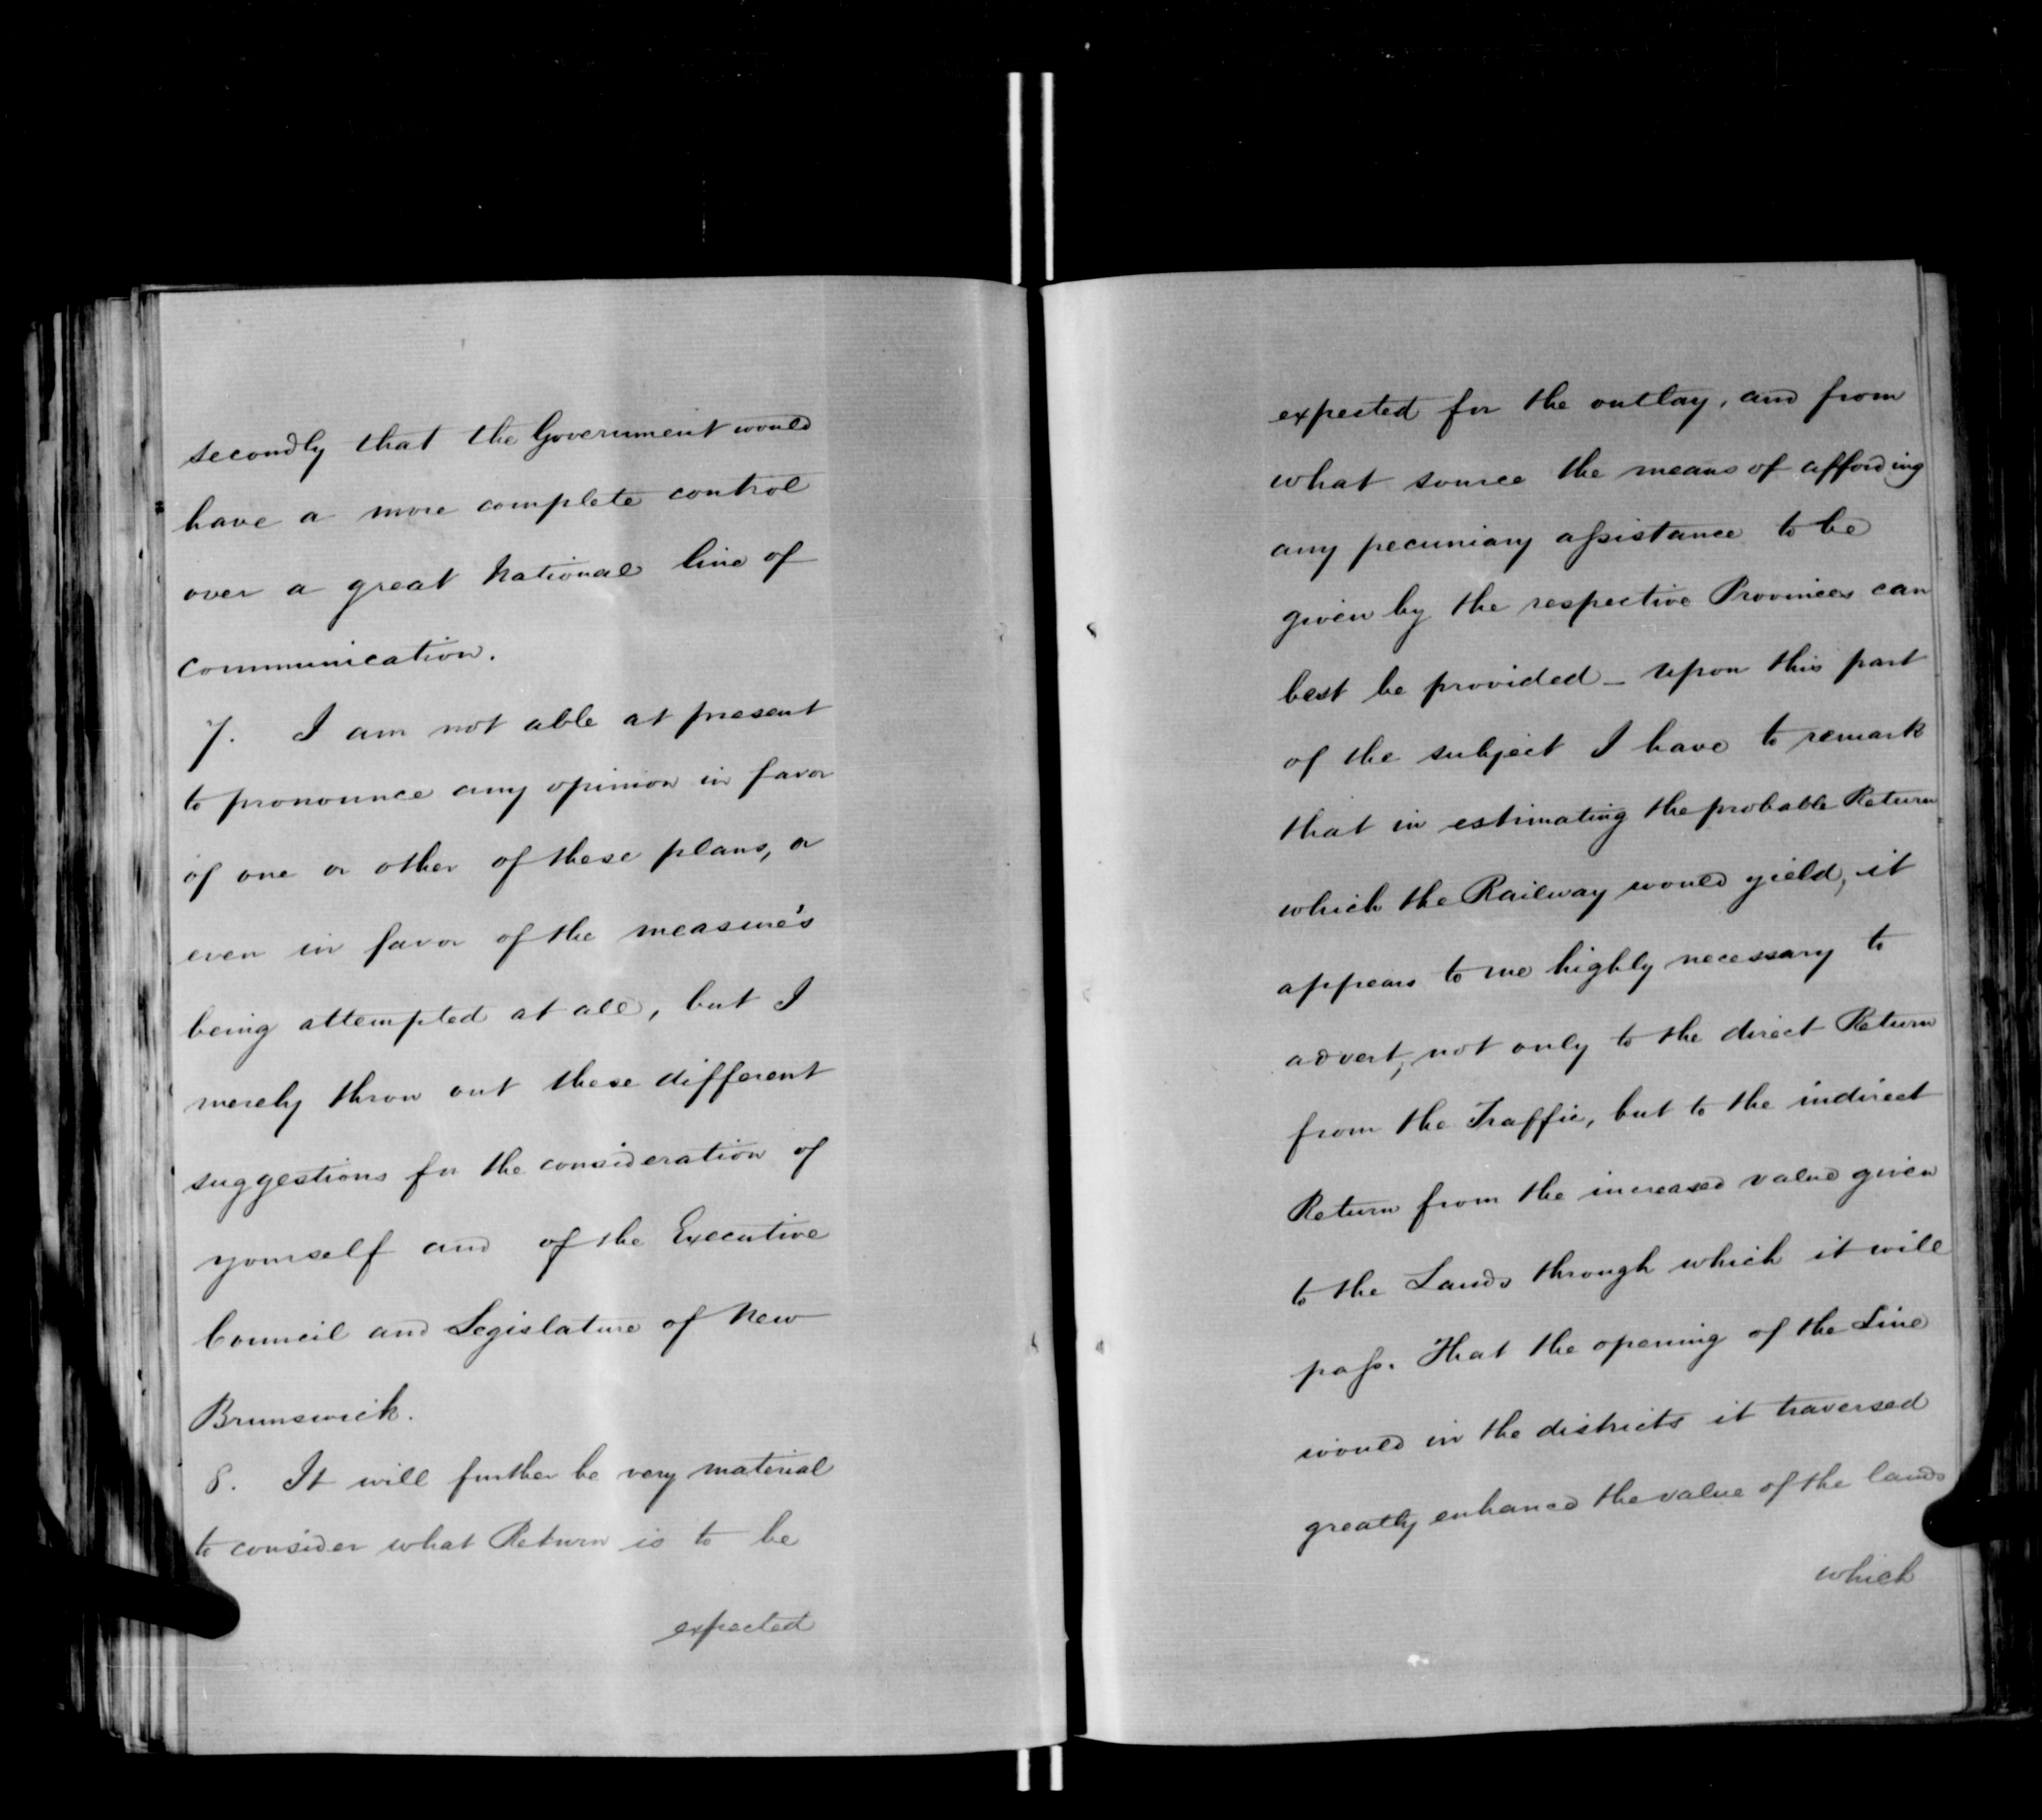 secondly that the Government would
have a more complete control
over a great National line of
communication.
7. I am not able at present
to pronounce any opinion in favor
of one or other of these plans, or
even in favor of the measure's
being attempted at all, but I
merely throw out these different
suggestions for the consideration of
yourself and of the Executive
Council and Legislature of New
Brunswick.
8. It will further be very material
to consider what Return is to be
expected
expected for the outlay, and from
what source the means of affording
any pecuniary assistance to be
given by the respective Provinces can
best be provided_ upon this part
of the subject I have to remark
that in estimating the probable Return
which the Railway would yield, it
appears to me highly necessary to
advert, not only to the direct Return
from the Traffic, but to the indirect
Return from the increased value given
to the Lands through which it will
pass. That the opening of the Line
would in the districts it traversed
greatly enhance the value of the lands
which